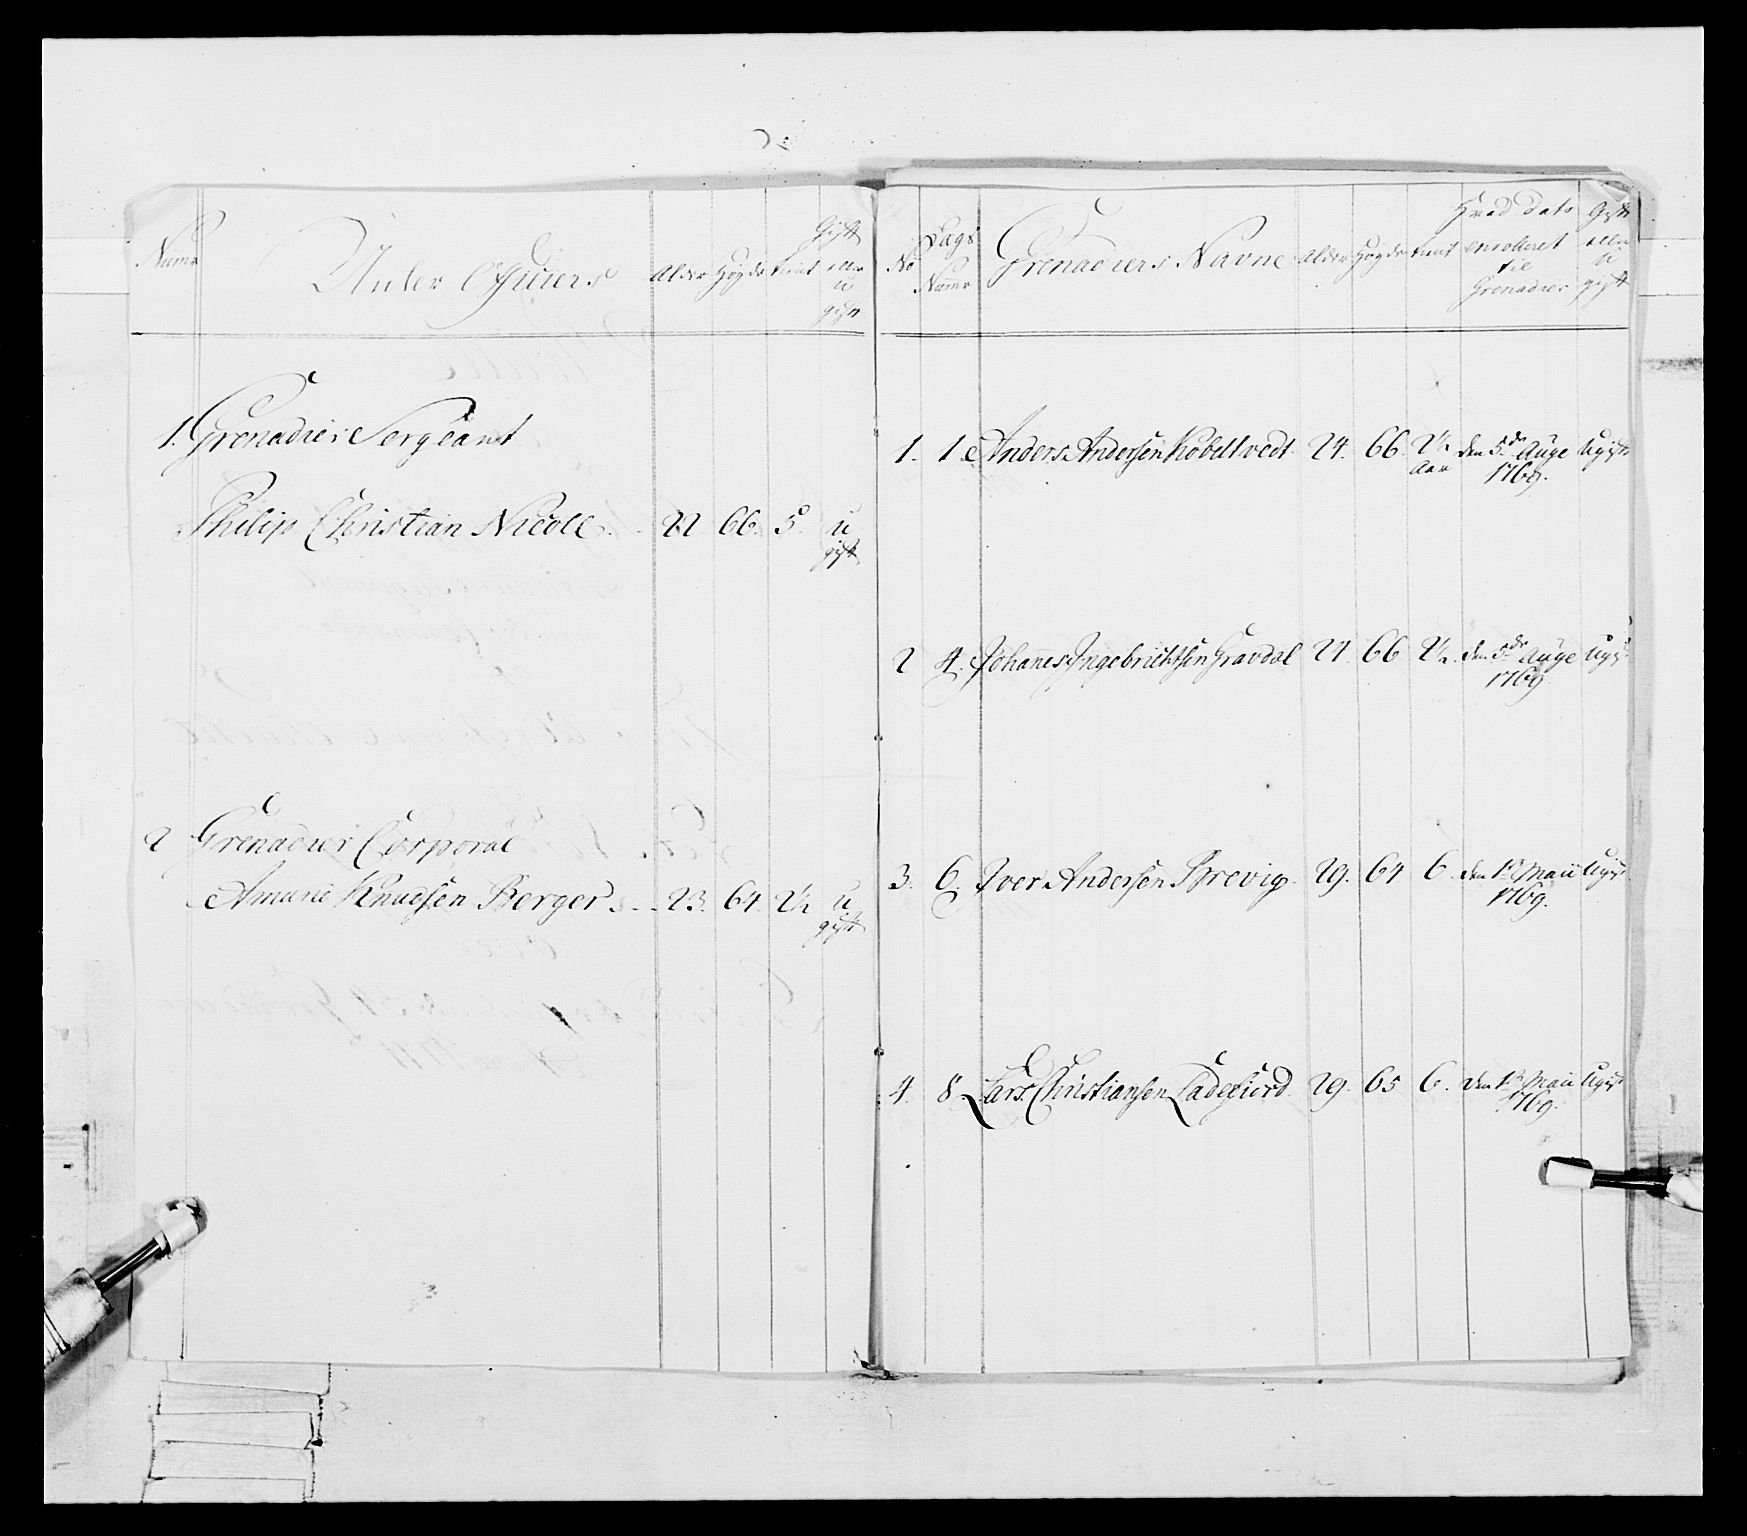 Numr
Unter Officiers
Alder
Høyde
tient
Gift
eller
u
gift
1. Grenadier Sergeant
Philip Christian Nicoll. 22 66. 5. u
gift
2 Grenadier Corporal
Knudsen Berger 23. 64. 2½ u
gift
No
Lægs
Numr
Grenadiers Navne
Alder
Høyde
tient
Hvad Dato
enrolleret
til
Grenadier
Gift
eller
u
gift
1. 1. Anders Andersen Kobeltvedt. 24. 66. 2½ den 5de Auge Ugift
Aar 1769.
2 4. Johannes Ingebrichtsen Gravdal 24. 66 2½. den 5de Auge Ugift
1769
3. 6. Iver Andersen Brevig. 29. 64 6. den 1te Maii Ugift
1769.
4. 8. Lars Christiansen Ladefiord. 29. 65 6. den 1te Maii Ugift
1769.